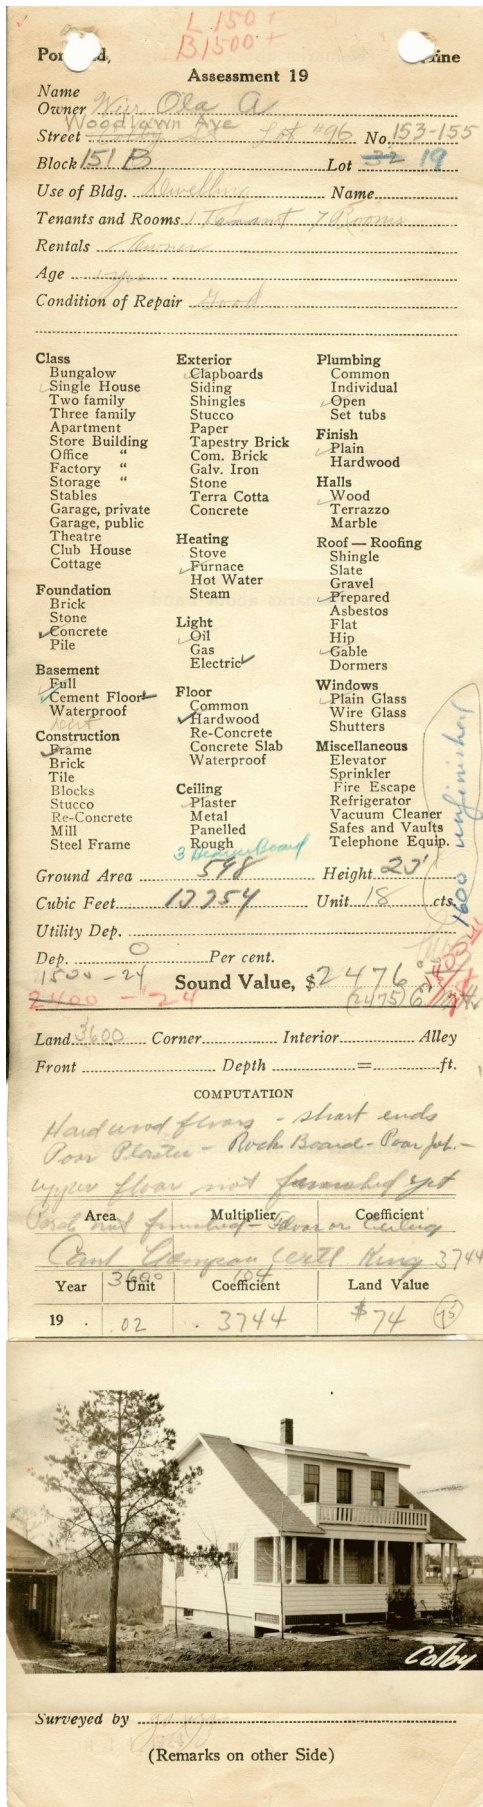 L 150 +
B 1500 +
Assessment 19
Name
Owner Wier, Ola A
Woodlawn Ave
Street Lot #96 No. 153-155
Block 151 B Lot 32 19
Use of Bldg. Dwelling Name
Tenants and Rooms 1 Tenant 7 Rooms
Rentals Owner
Age 1 yr
Condition of Repair Good
Class
Bungalow
Single House
Two family
Three family
Apartment
Store Building
Office "
Factory "
Storage "
Stables
Garage, private
Garage, public
Theatre
Club House
Cottage
Foundation
Brick
Stone
Concrete
Pile
Basement
Full
Cement Floor
Waterproof
Construction
Frame
Brick
Tile
Blocks
Stucco
Re-Concrete
Mill
Steel Frame
Exterior
Clapboards
Siding
Shingles
Stucco
Paper
Tapestry Brick
Com. Brick
Galv. Iron
Stone
Terra Cotta
Concrete
Heating
Stove
Furnace
Hot Water
Steam
Light
Oil
Gas
Electric
Floor
Common
Hardwood
Re-Concrete
Concrete Slab
Waterproof
Ceiling
Plaster
Metal
Panelled
Rough
3 Beaver Board
Plumbing
Common
Individual
Open
Set tubs
Finish
Plain
Hardwood
Halls
Wood
Terrazzo
Marble
Roof — Roofing
Shingle
Slate
Gravel
Prepared
Asbestos
Flat
Hip
Gable
Dormers
Windows
Plain Glass
Wire Glass
Shutters
Miscellaneous
Elevator
Sprinkler
Fire Escape
Refrigerator
Vacuum Cleaner
Safes and Vaults
Telephone Equip.
1600 unfinished
Ground Area 598 Height 23'
Cubic Feet 13754 Unit 18 cts.
Utility Dep.
Dep. 0 Per cent.
1500 - 24
Sound Value, $2476
2400 - 24 (2475)
Land 3600 Corner Interior Alley
Front Depth = ft.
COMPUTATION
Hardwood floors - short ends
Poor Plaster - Rock Board - Poor Job. -
upper floor not finished yet
not finished - Floor or Ceiling
Area Multiplier Coefficient
King 3744
Year Unit Coefficient Land Value
3600 104
19 . 02 3744 $74 75
Colby
Surveyed by
(Remarks on other Side)